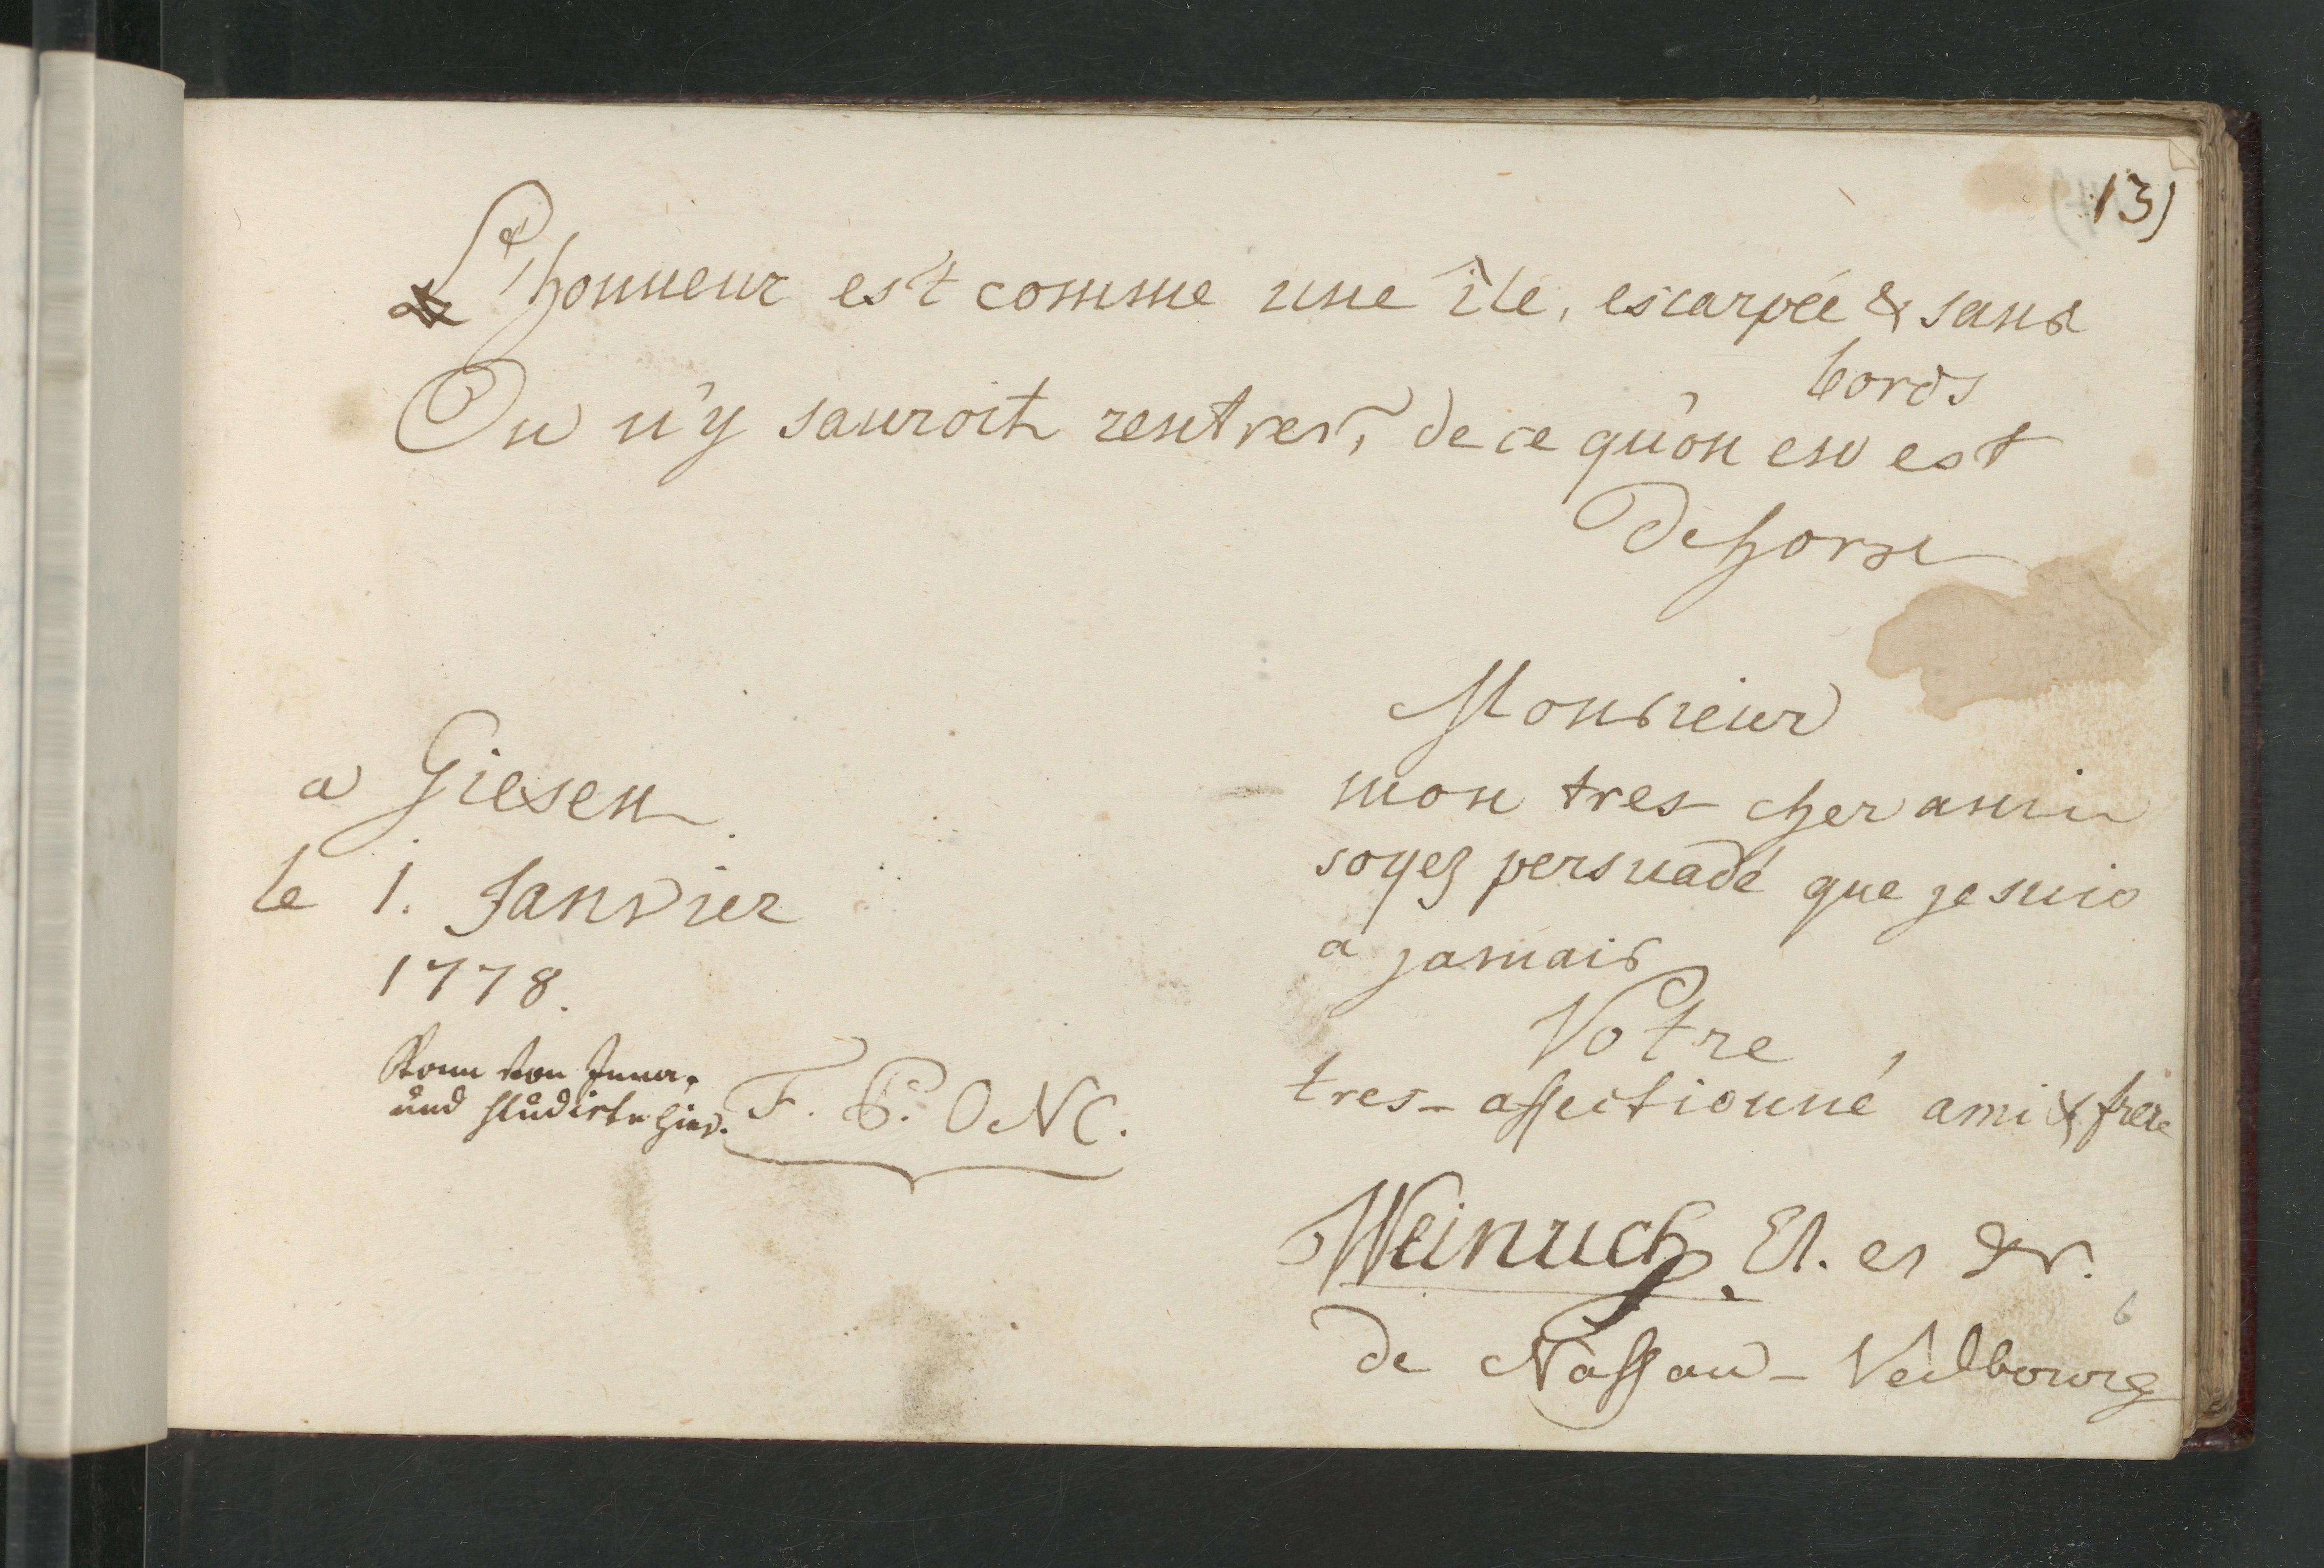 13)
L'honneur est comme une île, escarpée & sans
bords
On n'y sauroit rentrer, de ce qu'on en est
dehors
Monsieur
mon tres cher ami
soyez persuadé que je suis
a jamais
Votre
tres-affectionné ami & frere
Weinrich. El. es dr.
de Nassau-Veilbourg
a Giesen
le 1. Janvier
1778.
Kam von Jena,
und studirte hier.
F. P. O N C.
6